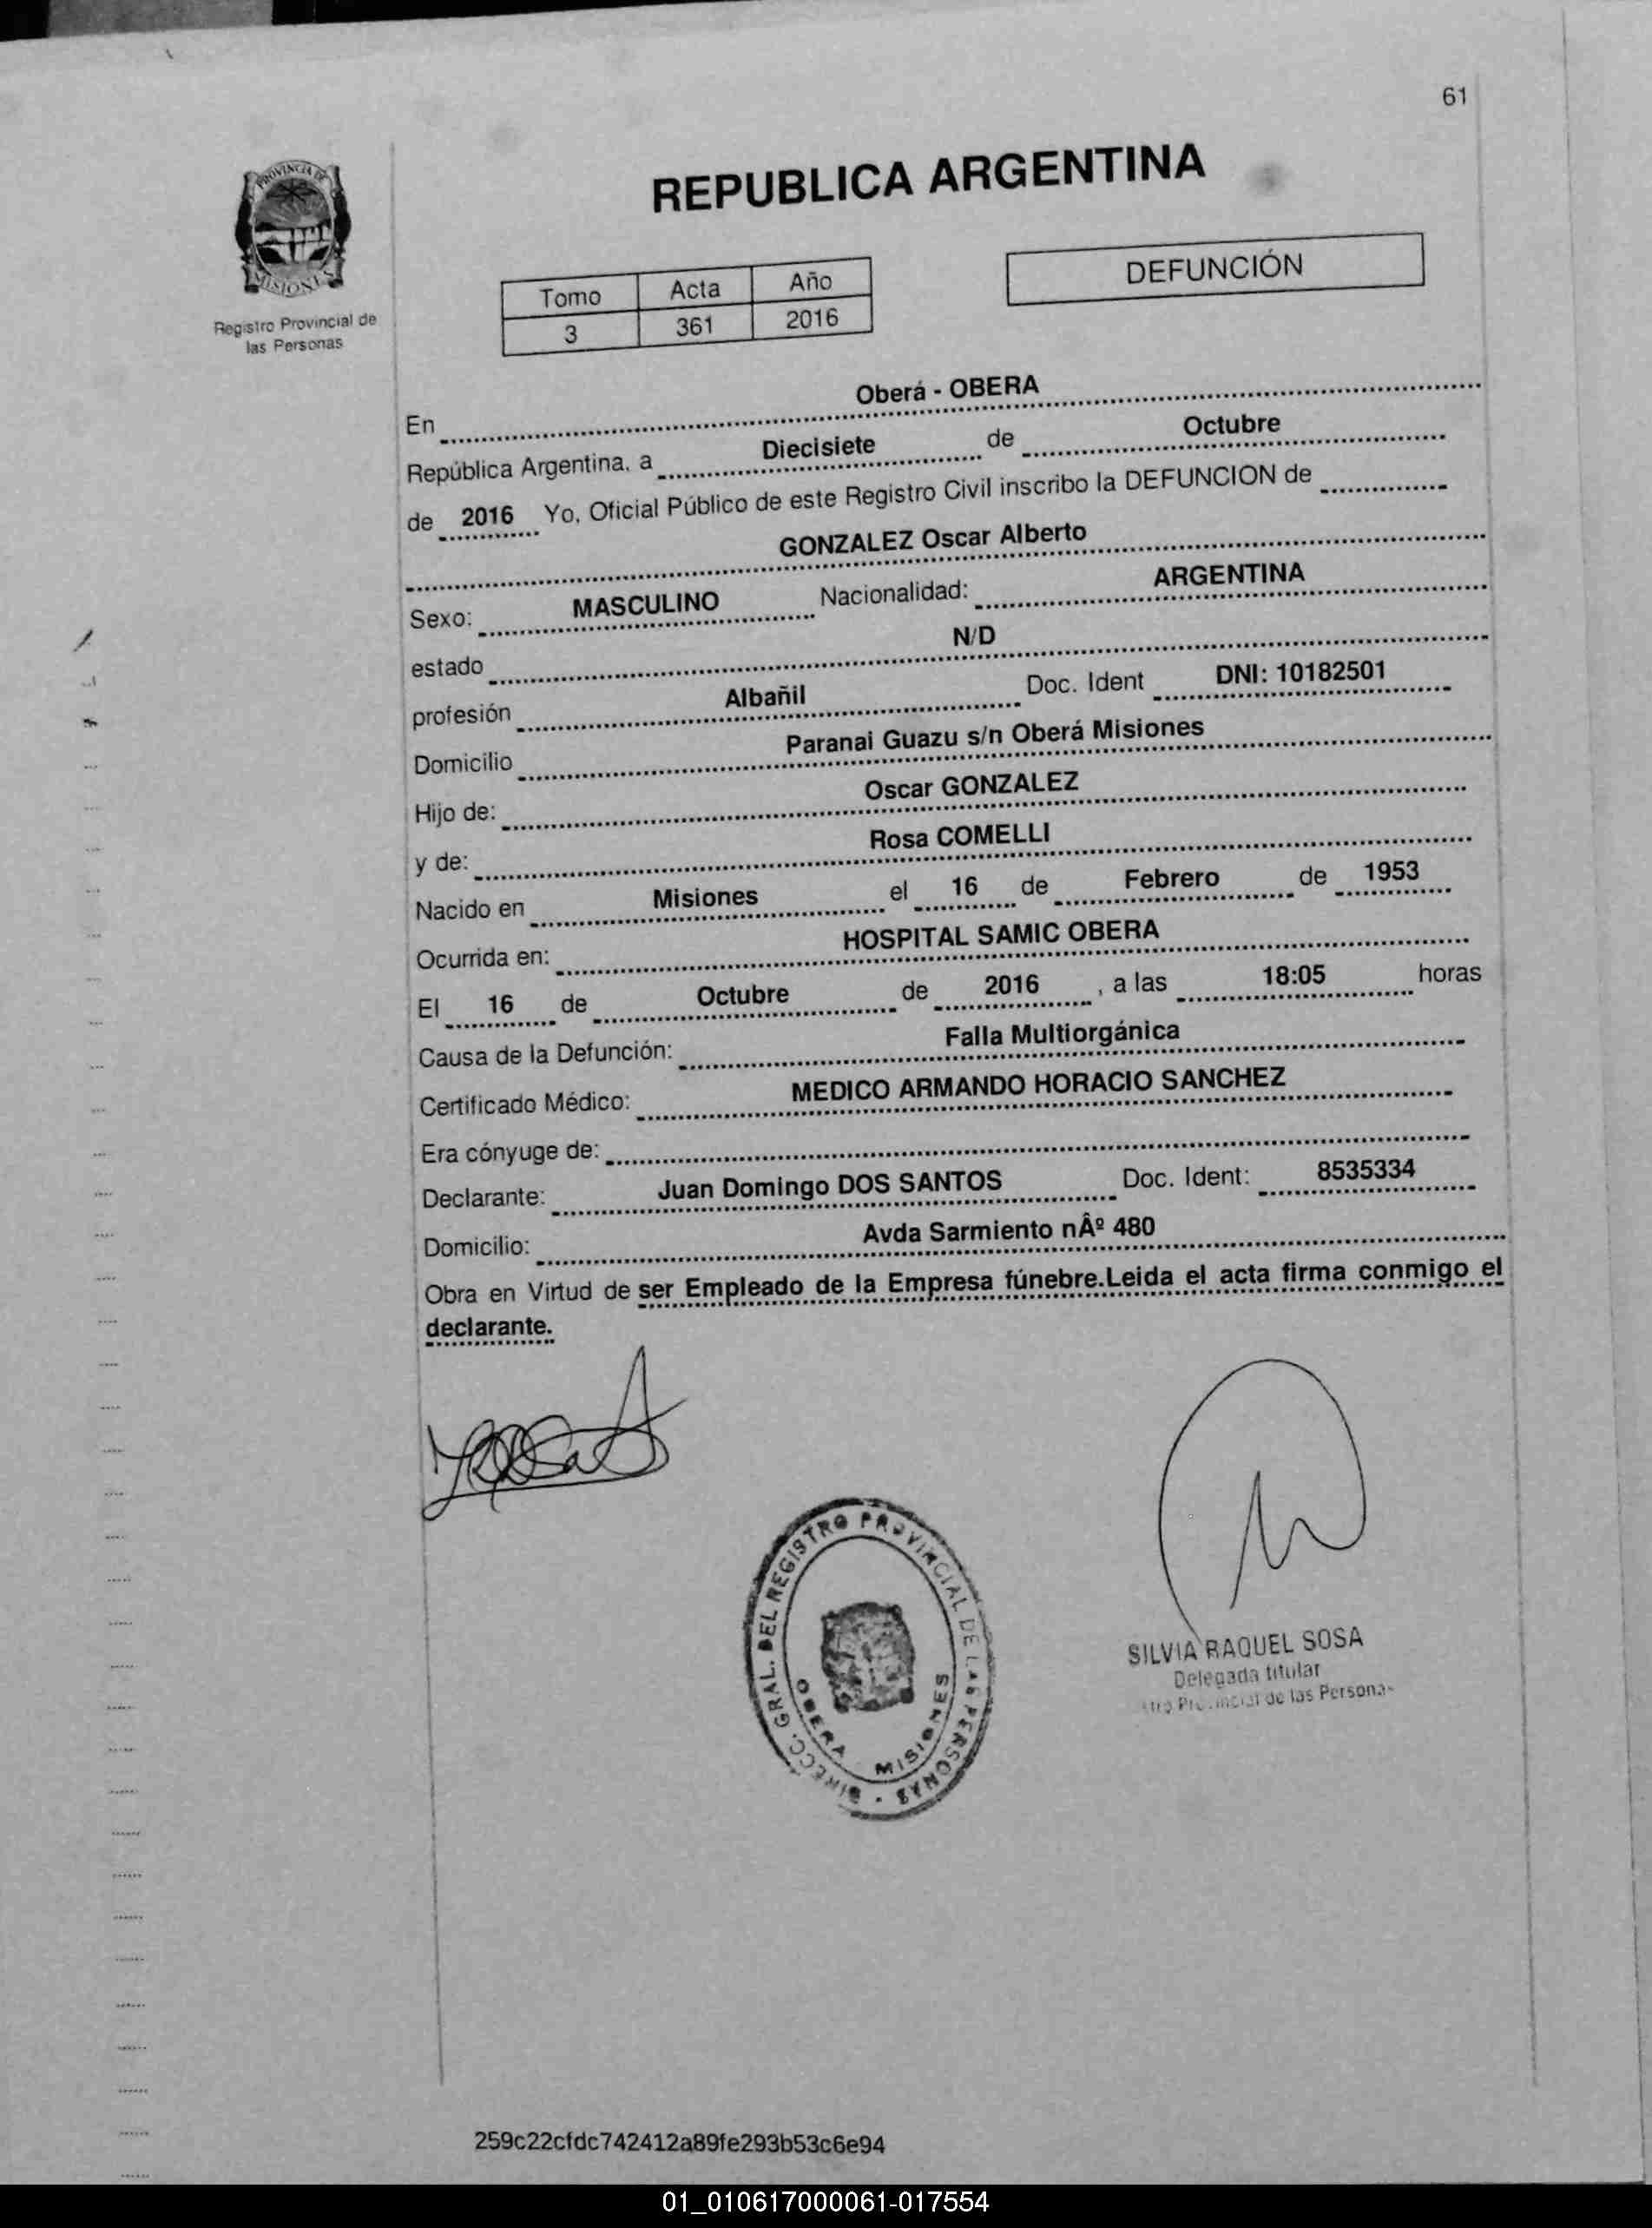 61
PROVINCIA DE
MISIONES
Registro Provincial de
las Personas
REPUBLICA ARGENTINA
Tomo Acta Año
3 361 2016
DEFUNCIÓN
En Oberá - OBERA
República Argentina, a Diecisiete de Octubre
de 2016 Yo, Oficial Público de este Registro Civil inscribo la DEFUNCION de
GONZALEZ Oscar Alberto
Sexo: MASCULINO Nacionalidad: ARGENTINA
estado N/D
profesión Albañil Doc. Ident DNI: 10182501
Domicilio Paranai Guazu s/n Oberá Misiones
Hijo de: Oscar GONZALEZ
y de: Rosa COMELLI
Nacido en Misiones el 16 de Febrero de 1953
Ocurrida en: HOSPITAL SAMIC OBERA
El 16 de Octubre de 2016 , a las 18:05 horas
Causa de la Defunción: Falla Multiorgánica
Certificado Médico: MEDICO ARMANDO HORACIO SANCHEZ
Era cónyuge de:
Declarante: Juan Domingo DOS SANTOS Doc. Ident: 8535334
Domicilio: Avda Sarmiento nÂº 480
Obra en Virtud de ser Empleado de la Empresa fúnebre.Leida el acta firma conmigo el
declarante.
DIRECC. GRAL. DEL REGISTRO PROVINCIAL DE LAS PERSONAS
OBERA MISIONES
SILVIA RAQUEL SOSA
Delegada titular
Provincial de las Persona
259c22cfdc742412a89fe293b53c6e94
01_010617000061-017554